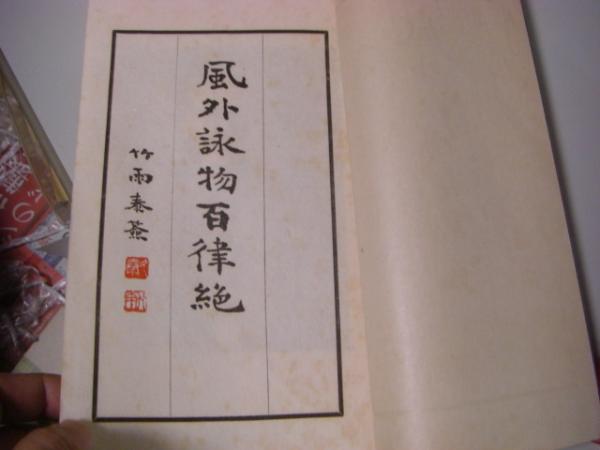 風外詠物百律絶
竹雨泰簽